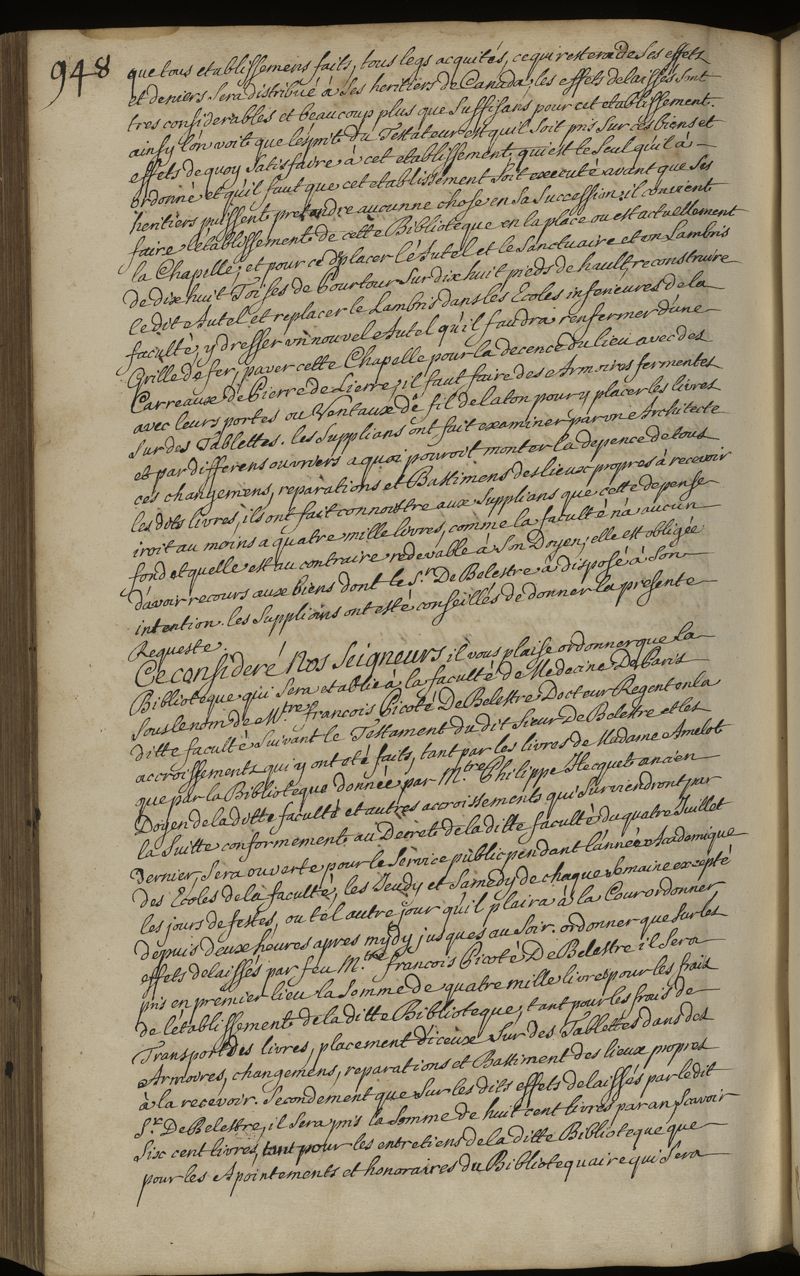 948
que tous etablissemens faits, tous legs acquités, ce qui restera de Ses effets
et deniers Sera distribué à Ses heritiers de Canada; les effets delaissés Sont
tres considerables et beaucoup plus que Suffisans pour cet etablissement.
ainsy l'on voit que l'esprit du Testateur est qu'il Soit pris Sur ces biens et
effets de quoy Satisfaire à cet etablissement, qui est le Seul qu'il à
ordonné et qu'il faut que cet etablissement Soit executé avant que Ses
heritiers puissent pretendre aucunne chose en Sa Succession; il convient
faire l'etablissement de cette Biblioteque en la place ou est actuellement
la Chapelle; et pour ce deplacer l'Autel et le Sanctuaire et un Lambris
de dix huit Toises de Pourtour Sur dix huit pieds de hault, reconstruire
le dit Autel et replacer le Lambris dans les Ecoles inferieures de la
faculté, y dresser un nouvel Autel qu'il faudra renfermer d'une
Grille de fer, paver cette Chapelle pour la decence du lieu avec des
Carreaux de Pierre de Lierre; il faut faire des Armoires fermentes
avec leurs portes ou Ventaux de fil de laton pour y placer les livres
Sur des Tablettes. les Supplians ont fait examiner par un Architecte
et par differens ouvriers a quoi pouroit monter la depence de tous
ces changemens, reparations et Bastimens des lieux propres à recevoir
les dits livres, ils ont fait connoistre aux Supplians que cette depense
iroit au moins a quatre mille livres, comme la faculté n'a aucun
fond et quelle est au contraire redevable à Son Doyen, elle est obligée
d'avoir recours aux biens dont le S.r De Belestre à disposé à Son
intention. les Supplians ont esté conseillés de donner la presente
Requeste.
Ce consideré Nos Seigneurs, il vous plaise ordonner que La
Biblioteque qui Sera etablie à la faculté de Medecine De Paris
Sous le nom de M.tre François Picoté De Belestre Docteur Regent en la
ditte faculté Suivant le Testament du dit Sieur De Belestre et les
accroissements qui y ont eté faits, tant par les livres de Madame Amelot
que par la Biblioteque donnée par M.tre Philippe Hecquet ancien
Doyen de la ditte faculté et autres accroissements qui Surviendront par
la Suitte conformement au Decret de la ditte faculté du quatre Juillet
dernier, Sera ouverte pour le Service public pendant l'année Academique
des Ecoles de la faculté, les Jeudy et Samedy de chaque Semaine excepté
les jours de festes, ou tel autre jour qu'il plaira à la Cour ordonner
depuis deux heures apres mydy jusques au Soir. ordonner que Sur les
effets delaissés par feu M.tre François Picoté De Belestre il Sera
pris en premier lieu la Somme de quatre mille livres pour les frais
de l'etablissement de la ditte Biblioteque, tant pour les frais de
Transport des livres, placement d'iceux Sur des Tablettes dans des
Armoires, changemens, reparations et Bastiment des lieux propres
à la recevoir. Secondement que Sur les dits effets delaissés par le dit
S.r De Belestre, il Sera pris la Somme de huit cent livres par an Scavoir
Six cent livres, tant pour les entretiens de la ditte Biblioteque que
pour les Apointements et honoraires du Bibliotequaire qui Sera